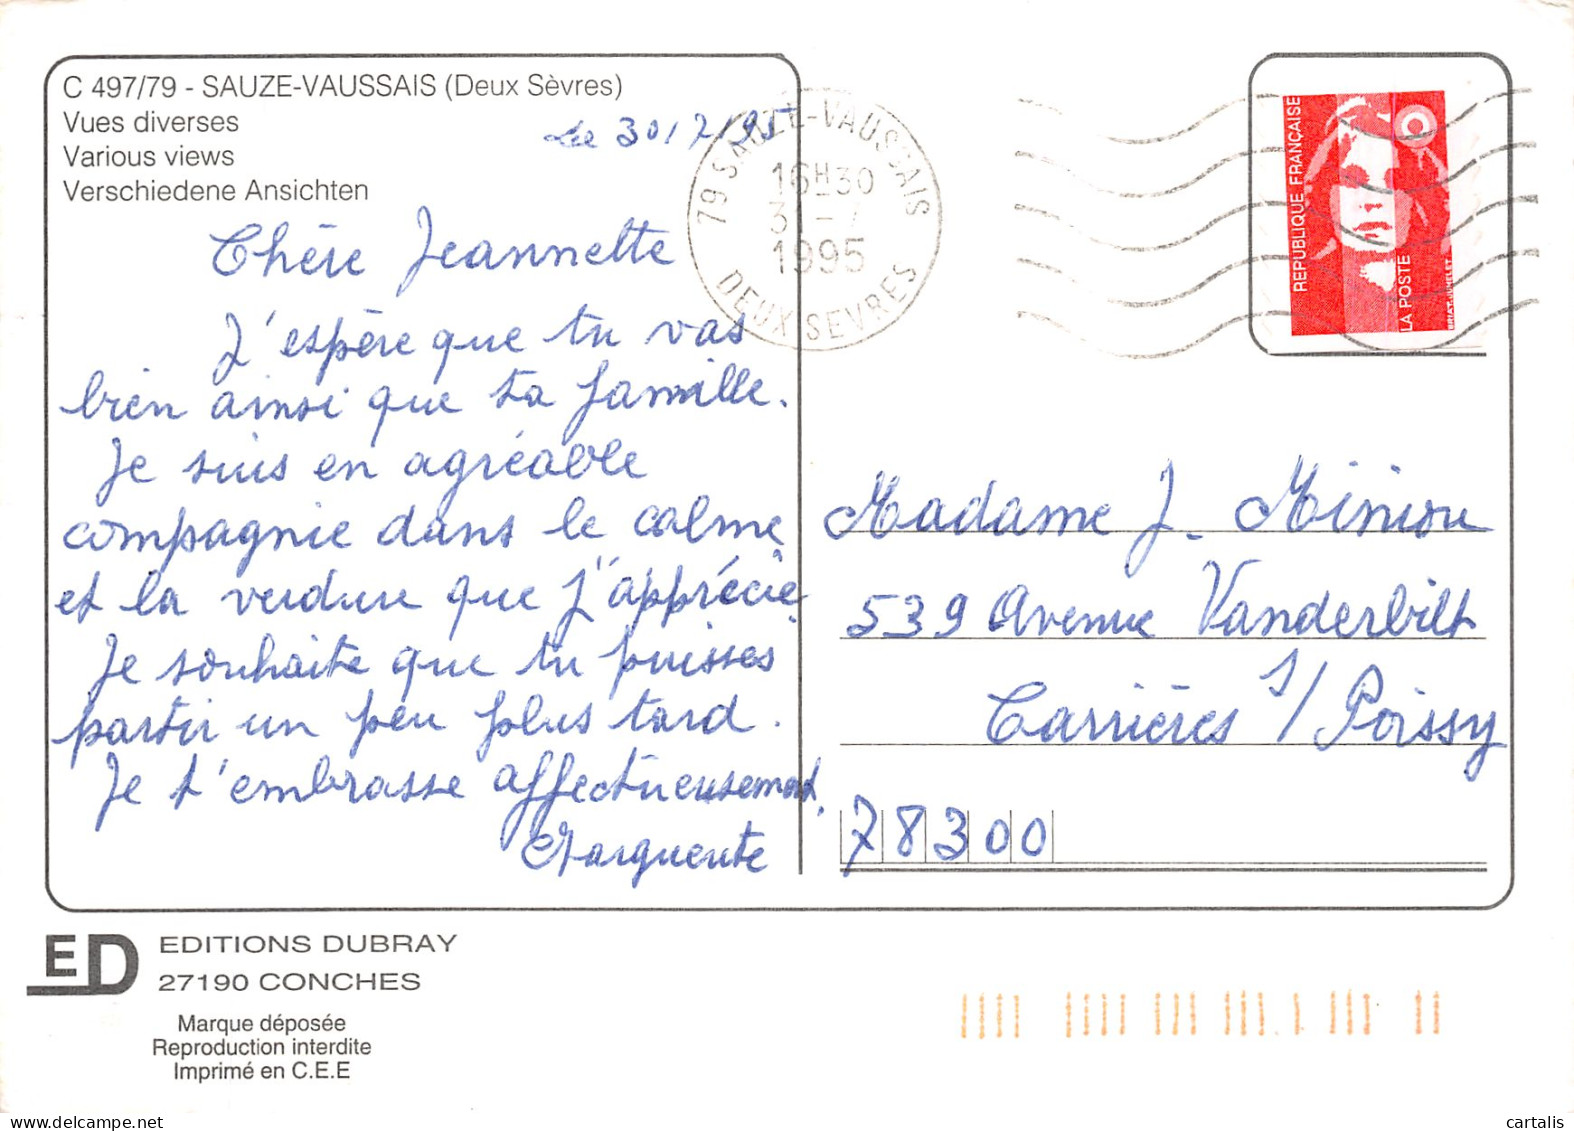 C 497/79 - SAUZE-VAUSSAIS (Deux Sèvres)
Vues diverses
Various views
Verschiedene Ansichten
Le 30/7/95
Chère Jeannette
J'espère que tu vas
bien ainsi que ta famille.
Je suis en agréable
compagnie dans le calme
et la verdure que j'apprécie.
Je souhaite que tu puisses
partir un peu plus tard.
Je t'embrasse affectueusement.
Marguerite
79 SAUZE-VAUSSAIS
16H30
1995
DEUX SEVRES
REPUBLIQUE FRANÇAISE
LA POSTE
BRIAT-JUMELET
Madame J. Miniou
539 Avenue Vanderbilt
Carrières s/Poissy
78300
ED
EDITIONS DUBRAY
27190 CONCHES
Marque déposée
Reproduction interdite
Imprimé en C.E.E
delcampe.net
cartalis